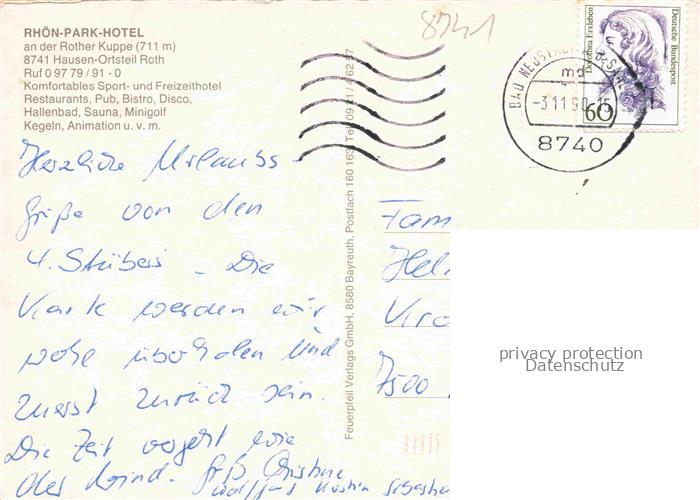 RHÖN-PARK-HOTEL
an der Rother Kuppe (711 m)
8741 Hausen-Ortsteil Roth
Ruf 0 97 79 / 91 - 0
Komfortables Sport- und Freizeithotel
Restaurants, Pub, Bistro, Disco,
Hallenbad, Sauna, Minigolf
Kegeln, Animation u. v. m.
8741
Herzliche Urlaubs-
grüße von den
4. Stübers - Die
Karte werden wir
wohl überholen und
zuerst zurück sein.
Die Zeit vergeht wie
der Wind. Gruß Christine
Feuerpfeil Verlags GmbH, 8580 Bayreuth, Postfach 160 163, Tel.
BAD NEUSTADT
md
-3.11.90.-15
8740
Dorothea Erxleben
Deutsche Bundespost
60
Fam
Hel
7500
privacy protection
Datenschutz